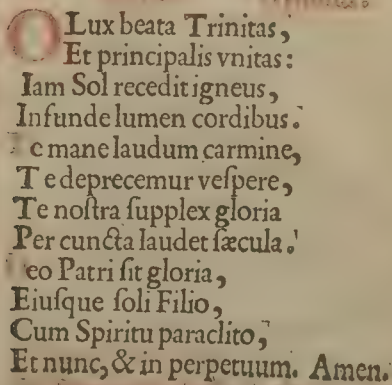 O Lux beata Trinitas,
Et principalis vnitas:
Iam Sol recedit igneus,
Infunde lumen cordibus.
Te mane laudum carmine,
Te deprecemur veſpere,
Te noſtra ſupplex gloria
Per cuncta laudet ſæcula.
Deo Patri ſit gloria,
Eiuſque ſoli Filio,
Cum Spiritu paraclito,
Et nunc, & in perpetuum. Amen.